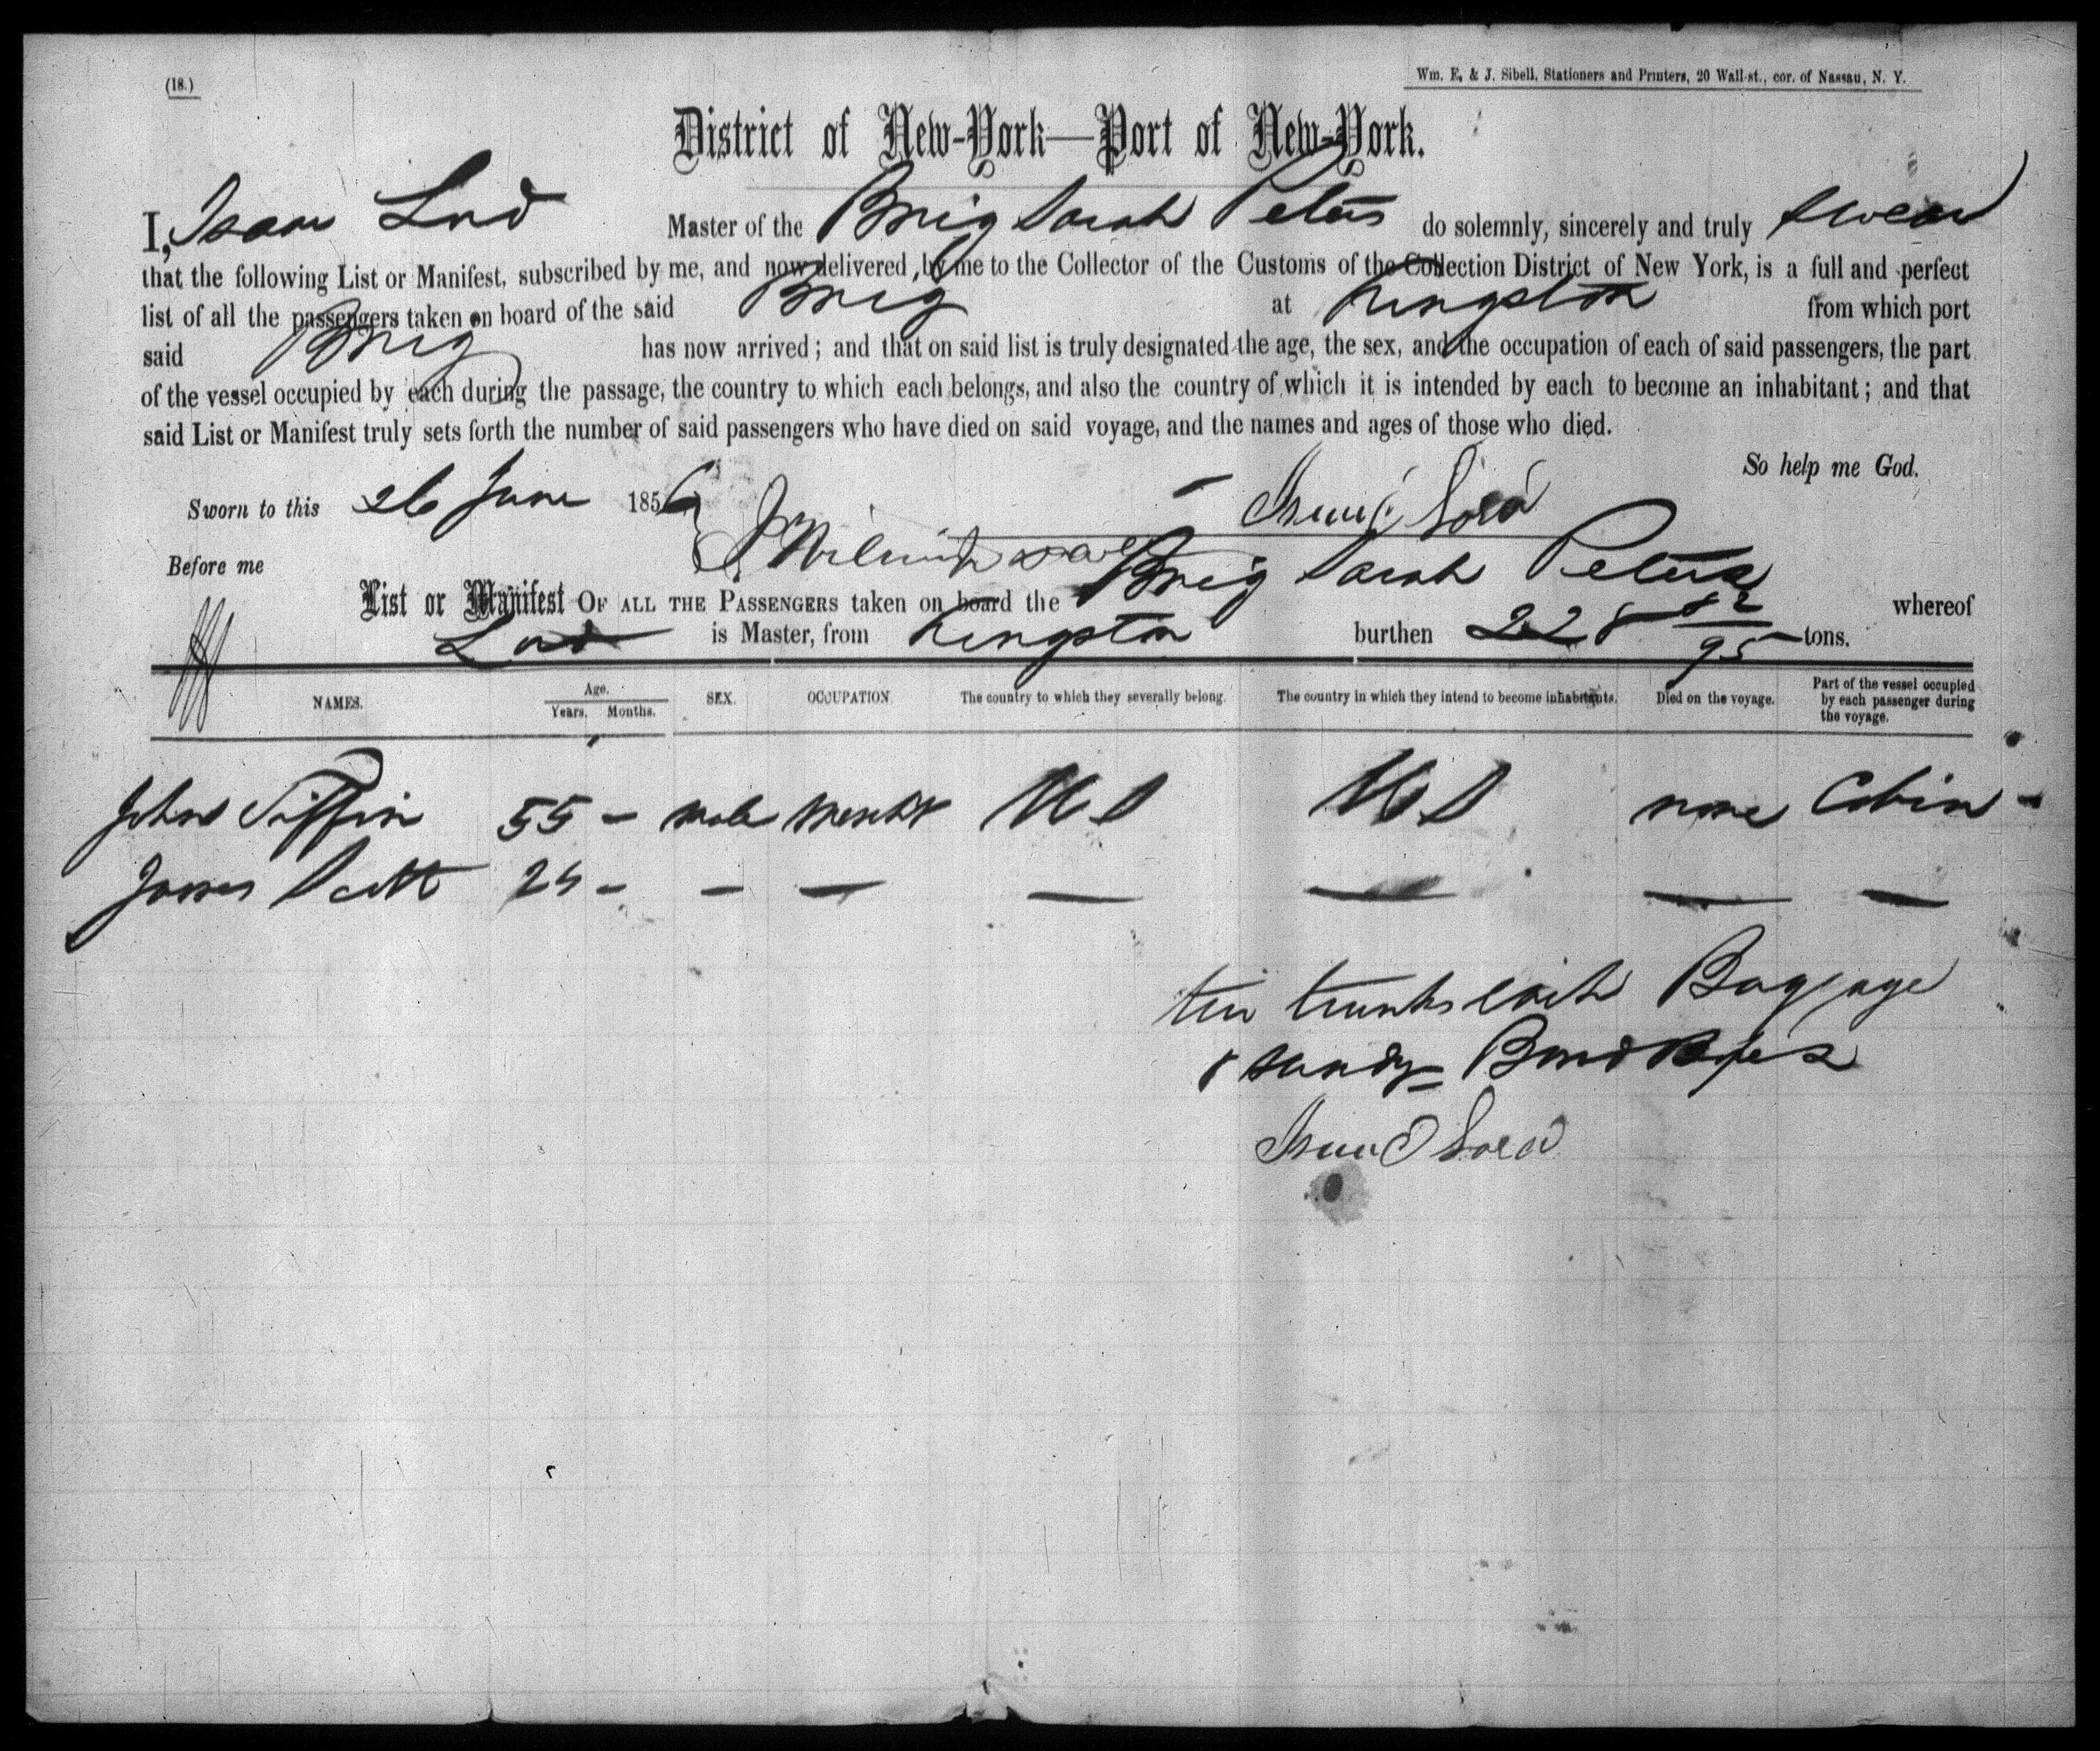 (18.)
Wm. E. & J. Sibell, Stationers and Printers, 20 Wall-st., cor. of Nassau, N. Y.
District of New-York—Port of New-York.
I, Isaac Lord Master of the Brig Sarah Peters do solemnly, sincerely and truly swear
that the following List or Manifest, subscribed by me, and now delivered by me to the Collector of the Customs of the Collection District of New York, is a full and perfect
list of all the passengers taken on board of the said Brig at Kingston from which port
said Brig has now arrived; and that on said list is truly designated the age, the sex, and the occupation of each of said passengers, the part
of the vessel occupied by each during the passage, the country to which each belongs, and also the country of which it is intended by each to become an inhabitant; and that
said List or Manifest truly sets forth the number of said passengers who have died on said voyage, and the names and ages of those who died.
So help me God.
Sworn to this 26 June 1856
Lord
Before me
List or Manifest OF ALL THE PASSENGERS taken on board the Brig Sarah Peters whereof
Lord is Master, from Kingston burthen 228 82/95 tons.
NAMES. Age. Years. Months. SEX. OCCUPATION The country to which they severally belong. The country in which they intend to become inhabitants. Died on the voyage. Part of the vessel occupied by each passenger during the voyage.
John Tiffin 55 – male Mercht US US none Cabin –
James Scott 25 – – — — — — —
trunks each Baggage
& sundry Band Boxes
Lord